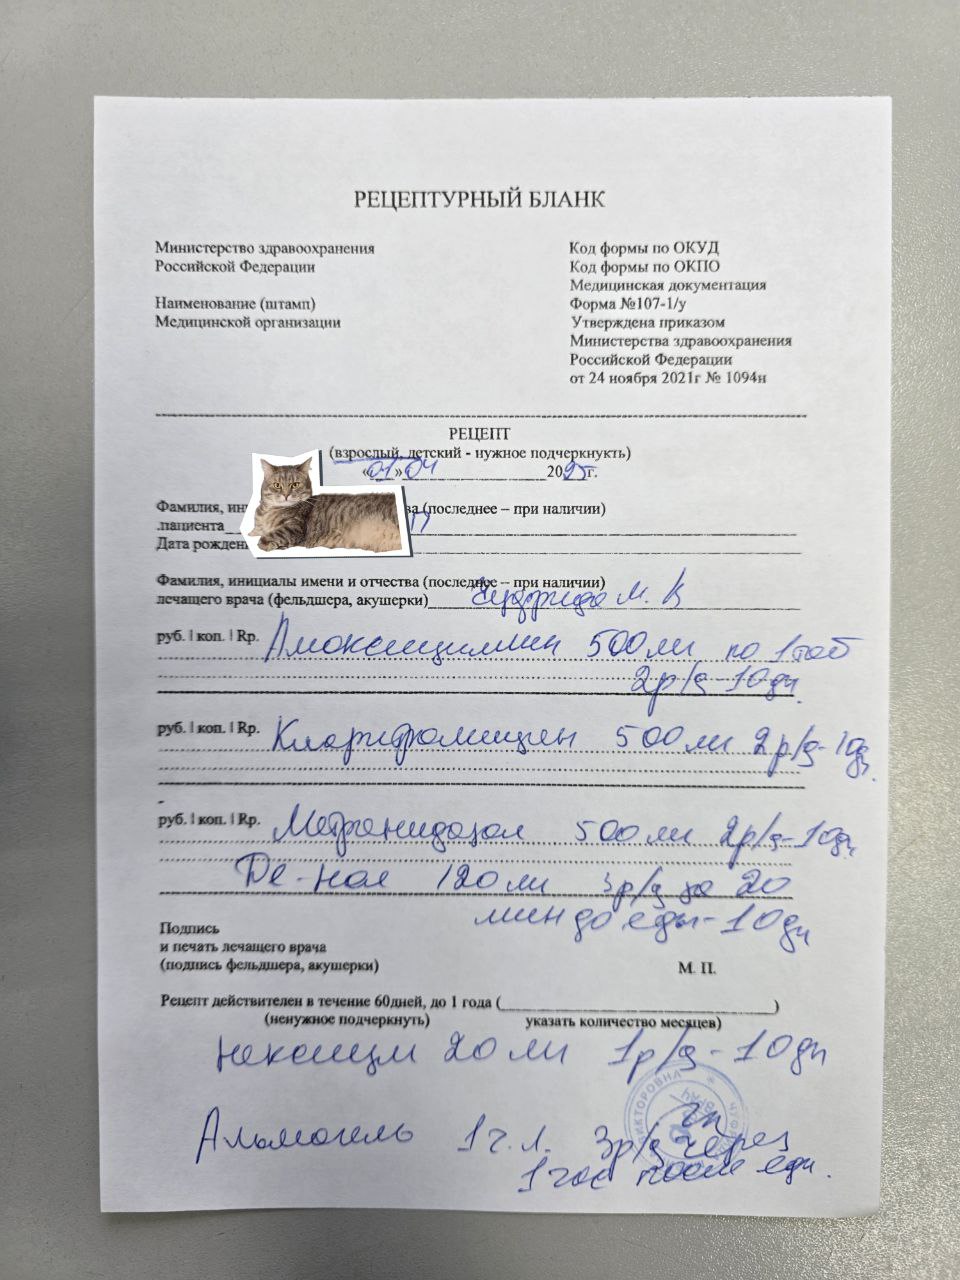 РЕЦЕПТУРНЫЙ БЛАНК
Министерство здравоохранения
Российской Федерации
Наименование (штамп)
Медицинской организации
Код формы по ОКУД
Код формы по ОКПО
Медицинская документация
Форма №107-1/у
Утверждена приказом
Министерства здравоохранения
Российской Федерации
от 24 ноября 2021г № 1094н
РЕЦЕПТ
(взрослый, детский - нужное подчеркнукть)
«01» 04 2025г.
Фамилия, ва (последнее – при наличии)
.пациента
Дата рожден
Фамилия, инициалы имени и отчества (последнее – при наличии)
лечащего врача (фельдшера, акушерки) М. В
руб. | коп. | Rp. Амоксициллин 500 мг по 1 таб
2р/д - 10 дн.
руб. | коп. | Rp. Кларитромицин 500 мг 2р/д - 10 дн.
руб. | коп. | Rp. Метронидазол 500 мг 2р/д - 10 дн
Де-нол 120 мг 3р/д за 20
мин до еды - 10 дн
Подпись
и печать лечащего врача
(подпись фельдшера, акушерки)
М. П.
Рецепт действителен в течение 60дней, до 1 года (
)
(ненужное подчеркнуть)
указать количество месяцев)
Нексиум 20 мг 1р/д - 10 дн
Альмагель 1 ч.л. 3р/д через
1 час после еды.
ВИКТОРОВНА
ВРАЧ